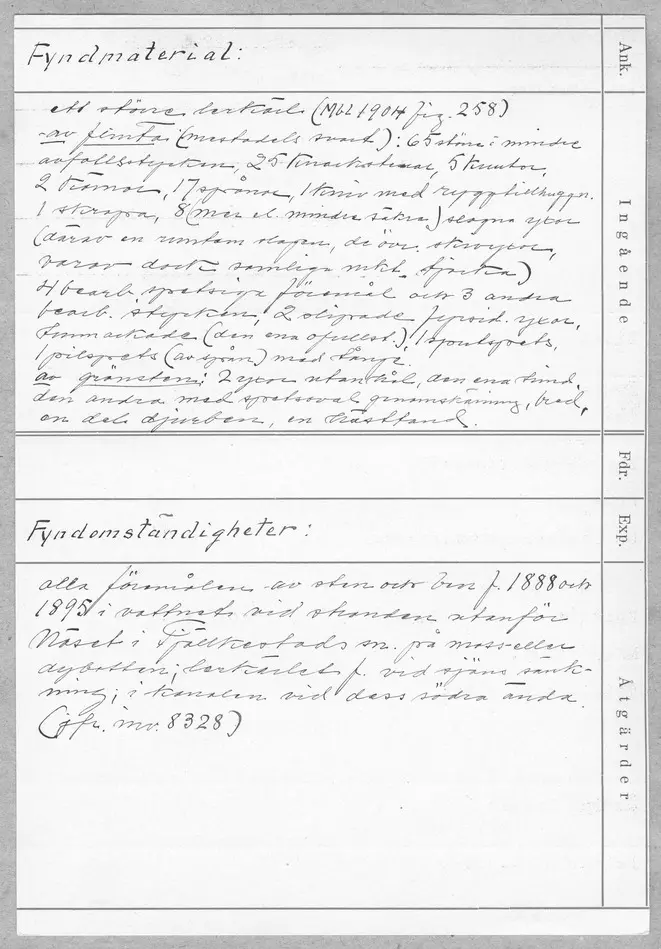 Fyndmaterial:
ett större lerkärl (Mbl 1904 fig. 258)
av flinta: (mestadels svart): 65 större i mindre
avfallsstycken, 25 knackstenar, 5 knutor,
2 kärnor, 17 spånor, 1 kniv med rygg
1 skrapa, 8 (mer el. mindre säkra) slagna yxor
(därav en runtom slagen, de övr. skivyxor,
varav dock samtliga mkt tjocka)
4 bearb. spetsiga föremål och 3 andra
bearb. stycken, 2 slipade fyrsid. yxor,
tunnackade (den ena ofullst.), 1 spjutspets,
1 pilspets (av spån) med tånge.
av grönsten: 2 yxor utan hål, den ena rund,
den andra med spetsoval genomskärning, bred,
en del djurben, en hästtand.
Fyndomständigheter:
alla föremålen av sten och ben f. 1888 och
1895 i vattnet vid stranden utanför
Näset i Fjälkestads sn. på moss- eller
dybotten; lerkärlet f. vid sjöns sänk-
ning; i kanalen vid dess södra ända.
(jfr. inv. 8328)
Ank.
Ingående
Fdr.
Exp.
Åtgärder